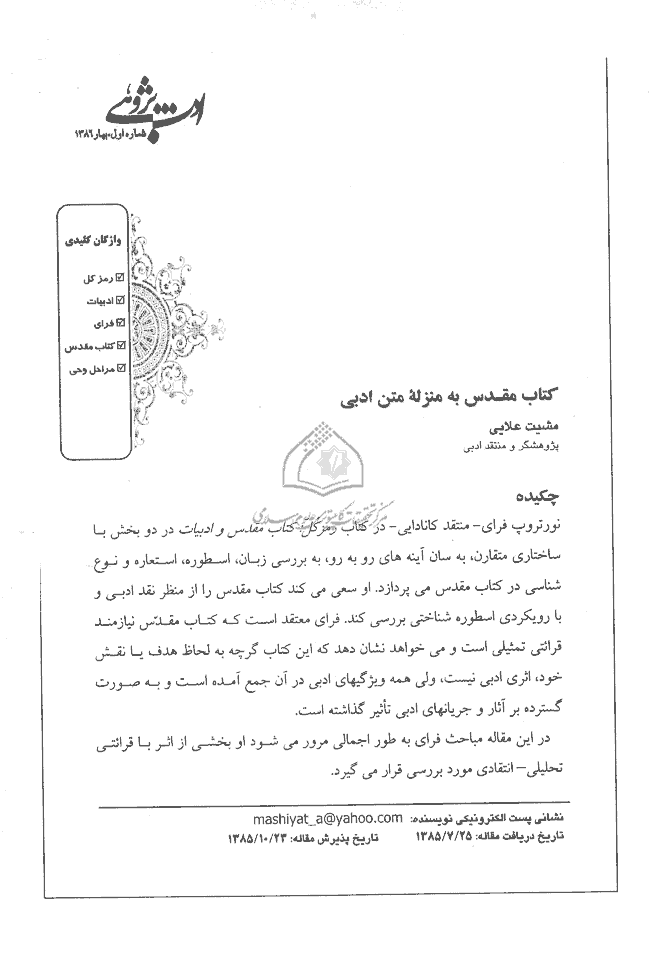 ادب پژوهی
شماره اول، بهار ۱۳۸۶
واژگان کلیدی
رمز کل
ادبیات
فرای
کتاب مقدس
مراحل وحی
کتاب مقدس به منزلۀ متن ادبی
مشیت علایی
پژوهشگر و منتقد ادبی
چکیده
نورتروپ فرای- منتقد کانادایی- در کتاب رمز کل: کتاب مقدس و ادبیات در دو بخش با
ساختاری متقارن، به سان آینه های رو به رو، به بررسی زبان، اسطوره، استعاره و نوع
شناسی در کتاب مقدس می پردازد. او سعی می کند کتاب مقدس را از منظر نقد ادبی و
با رویکردی اسطوره شناختی بررسی کند. فرای معتقد است که کتاب مقدّس نیازمند
قرائتی تمثیلی است و می خواهد نشان دهد که این کتاب گرچه به لحاظ هدف یا نقش
خود، اثری ادبی نیست، ولی همه ویژگیهای ادبی در آن جمع آمده است و به صورت
گسترده بر آثار و جریانهای ادبی تأثیر گذاشته است.
در این مقاله مباحث فرای به طور اجمالی مرور می شود او بخشی از اثر با قرائتی
تحلیلی- انتقادی مورد بررسی قرار می گیرد.
نشانی پست الکترونیکی نویسنده: mashiyat_a@yahoo.com
تاریخ دریافت مقاله: ۱۳۸۵/۷/۲۵ تاریخ پذیرش مقاله: ۱۳۸۵/۱۰/۲۳